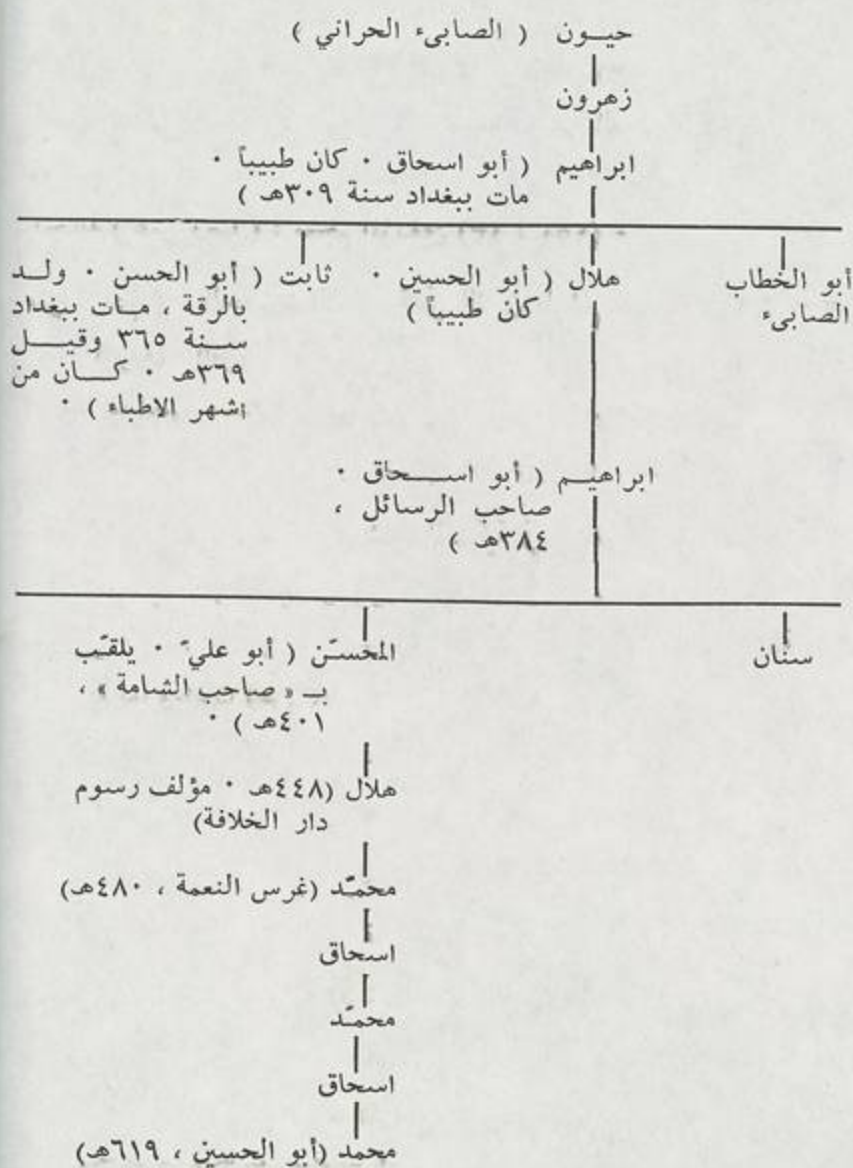 حيـــون ( الصابيء الحراني )
زهرون
ابراهيم ( أبو اسحاق ٠ كان طبيباً ٠
مات ببغداد سنة ٣٠٩هـ )
أبو الخطاب
الصابيء
هلال ( أبو الحسين ٠
كان طبيباً )
ثابت ( أبو الحسن ٠ ولــد
بالرقة ، مــات ببغداد
ســنة ٣٦٥ وقيــــل
٣٦٩هـ ٠ كــــان من
اشهر الاطباء ) ٠
ابراهيــم ( أبو اســــحاق ٠
صاحب الرسائل ،
٣٨٤هـ )
سنان
المحسّن ( أبو عليّ ٠ يلقّب
بــ « صاحب الشامة » ،
٤٠١هـ ) ٠
هلال (٤٤٨هـ ٠ مؤلف رسوم
دار الخلافة)
محمّد (غرس النعمة ، ٤٨٠هـ)
اسحاق
محمّد
اسحاق
محمد (أبو الحسين ، ٦١٩هـ)